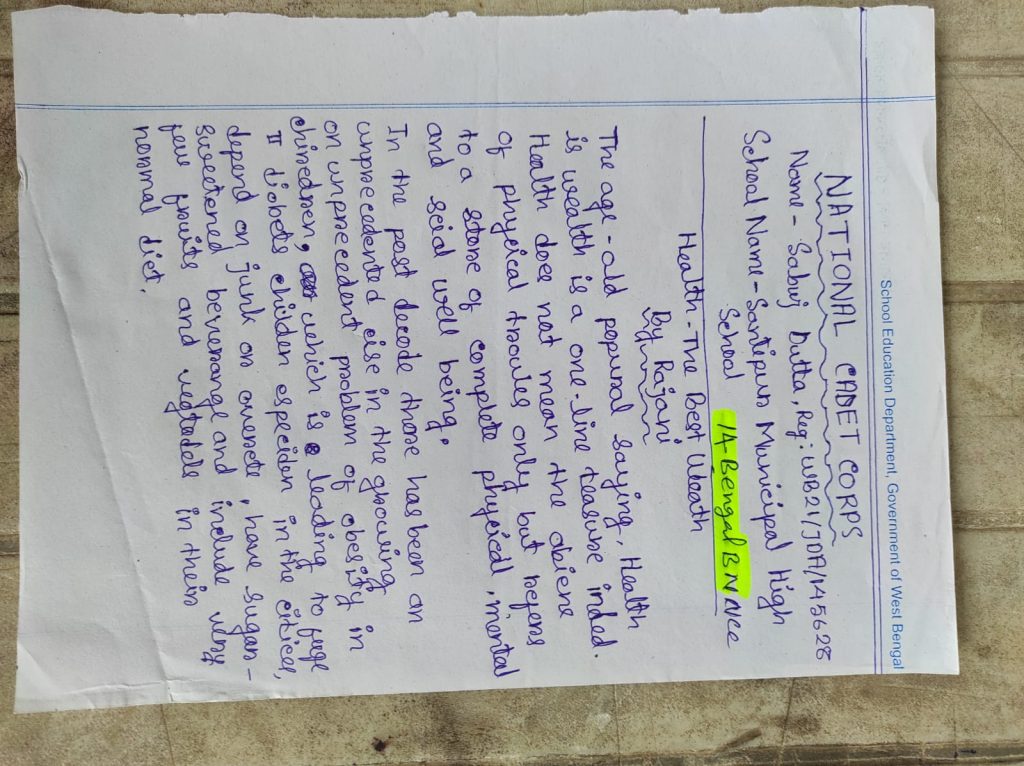 School Education Department, Government of West Bengal
NATIONAL CADET CORPS
Name - Sabuj Dutta, Reg: WB21/JDA/145628
School Name - Santipur Municipal High
School 1A-Bengal BN NCC
Health - The Best Wealth
By Rajani
The age-old popular saying, Health
is wealth is a one-line teasure inded.
Health does not mean the
of physical only but refers
to a store of complete physical, mental
and
well being.
In the past decode those has been an
unprecedented rise in the growing
on unprecedent problem of obesity in
which is leading to
II diabets children in the citices,
depend on junk on , have sugar-
sweetened and include very
few fruits and in their
normal diet.